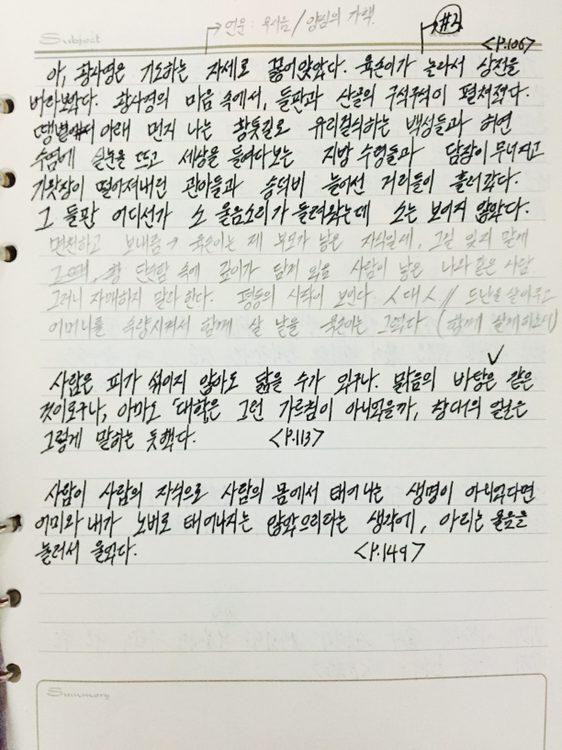 Subject
#3
<P.106>
아, 황사영은 기도하는 자세로 꿇어앉았다. 육손이가 놀라서 상전을
바라보았다. 황사영의 마음 속에서, 들판과 산골의 구석구석이 펼쳐졌다.
땡볕 아래 먼지 나는 황톳길로 유리걸식하는 백성들과 허연
수염에 실눈을 뜨고 세상을 들여다보는 지방 수령들과 담장이 무너지고
기왓장이 떨어져내린 관아들과 송덕비 늘어선 거리들이 흘러갔다.
그 들판 어디선가 소 울음소리가 들려왔는데 소는 보이지 않았다.
면천하고 보내줌 → 육손이는 제 부모가 낳은 자식일세, 그걸 잊지 말게
단순함 속에 깊이가 담겨 있음 사람이 낳은 나와 같은 사람
그러니 자매하지 말라 한다. 평등의 시작이 보인다.
어머니를 속량시켜서 함께 살 날을 육손이는 그렸다
사람은 피가 섞이지 않아도 닮을 수가 있구나. 맑음의 바탕은 같은
것이로구나, 아마도 「대학」은 그런 가르침이 아니었을까, 창대의 얼굴은
그렇게 말하는 듯했다. <P.113>
사람이 사람의 자식으로 사람의 몸에서 태어나는 생명이 아니었다면
어미와 내가 노비로 태어나지는 않았으리라는 생각에, 아리는 울음을
눌러서 울었다. <P.149>
Summary